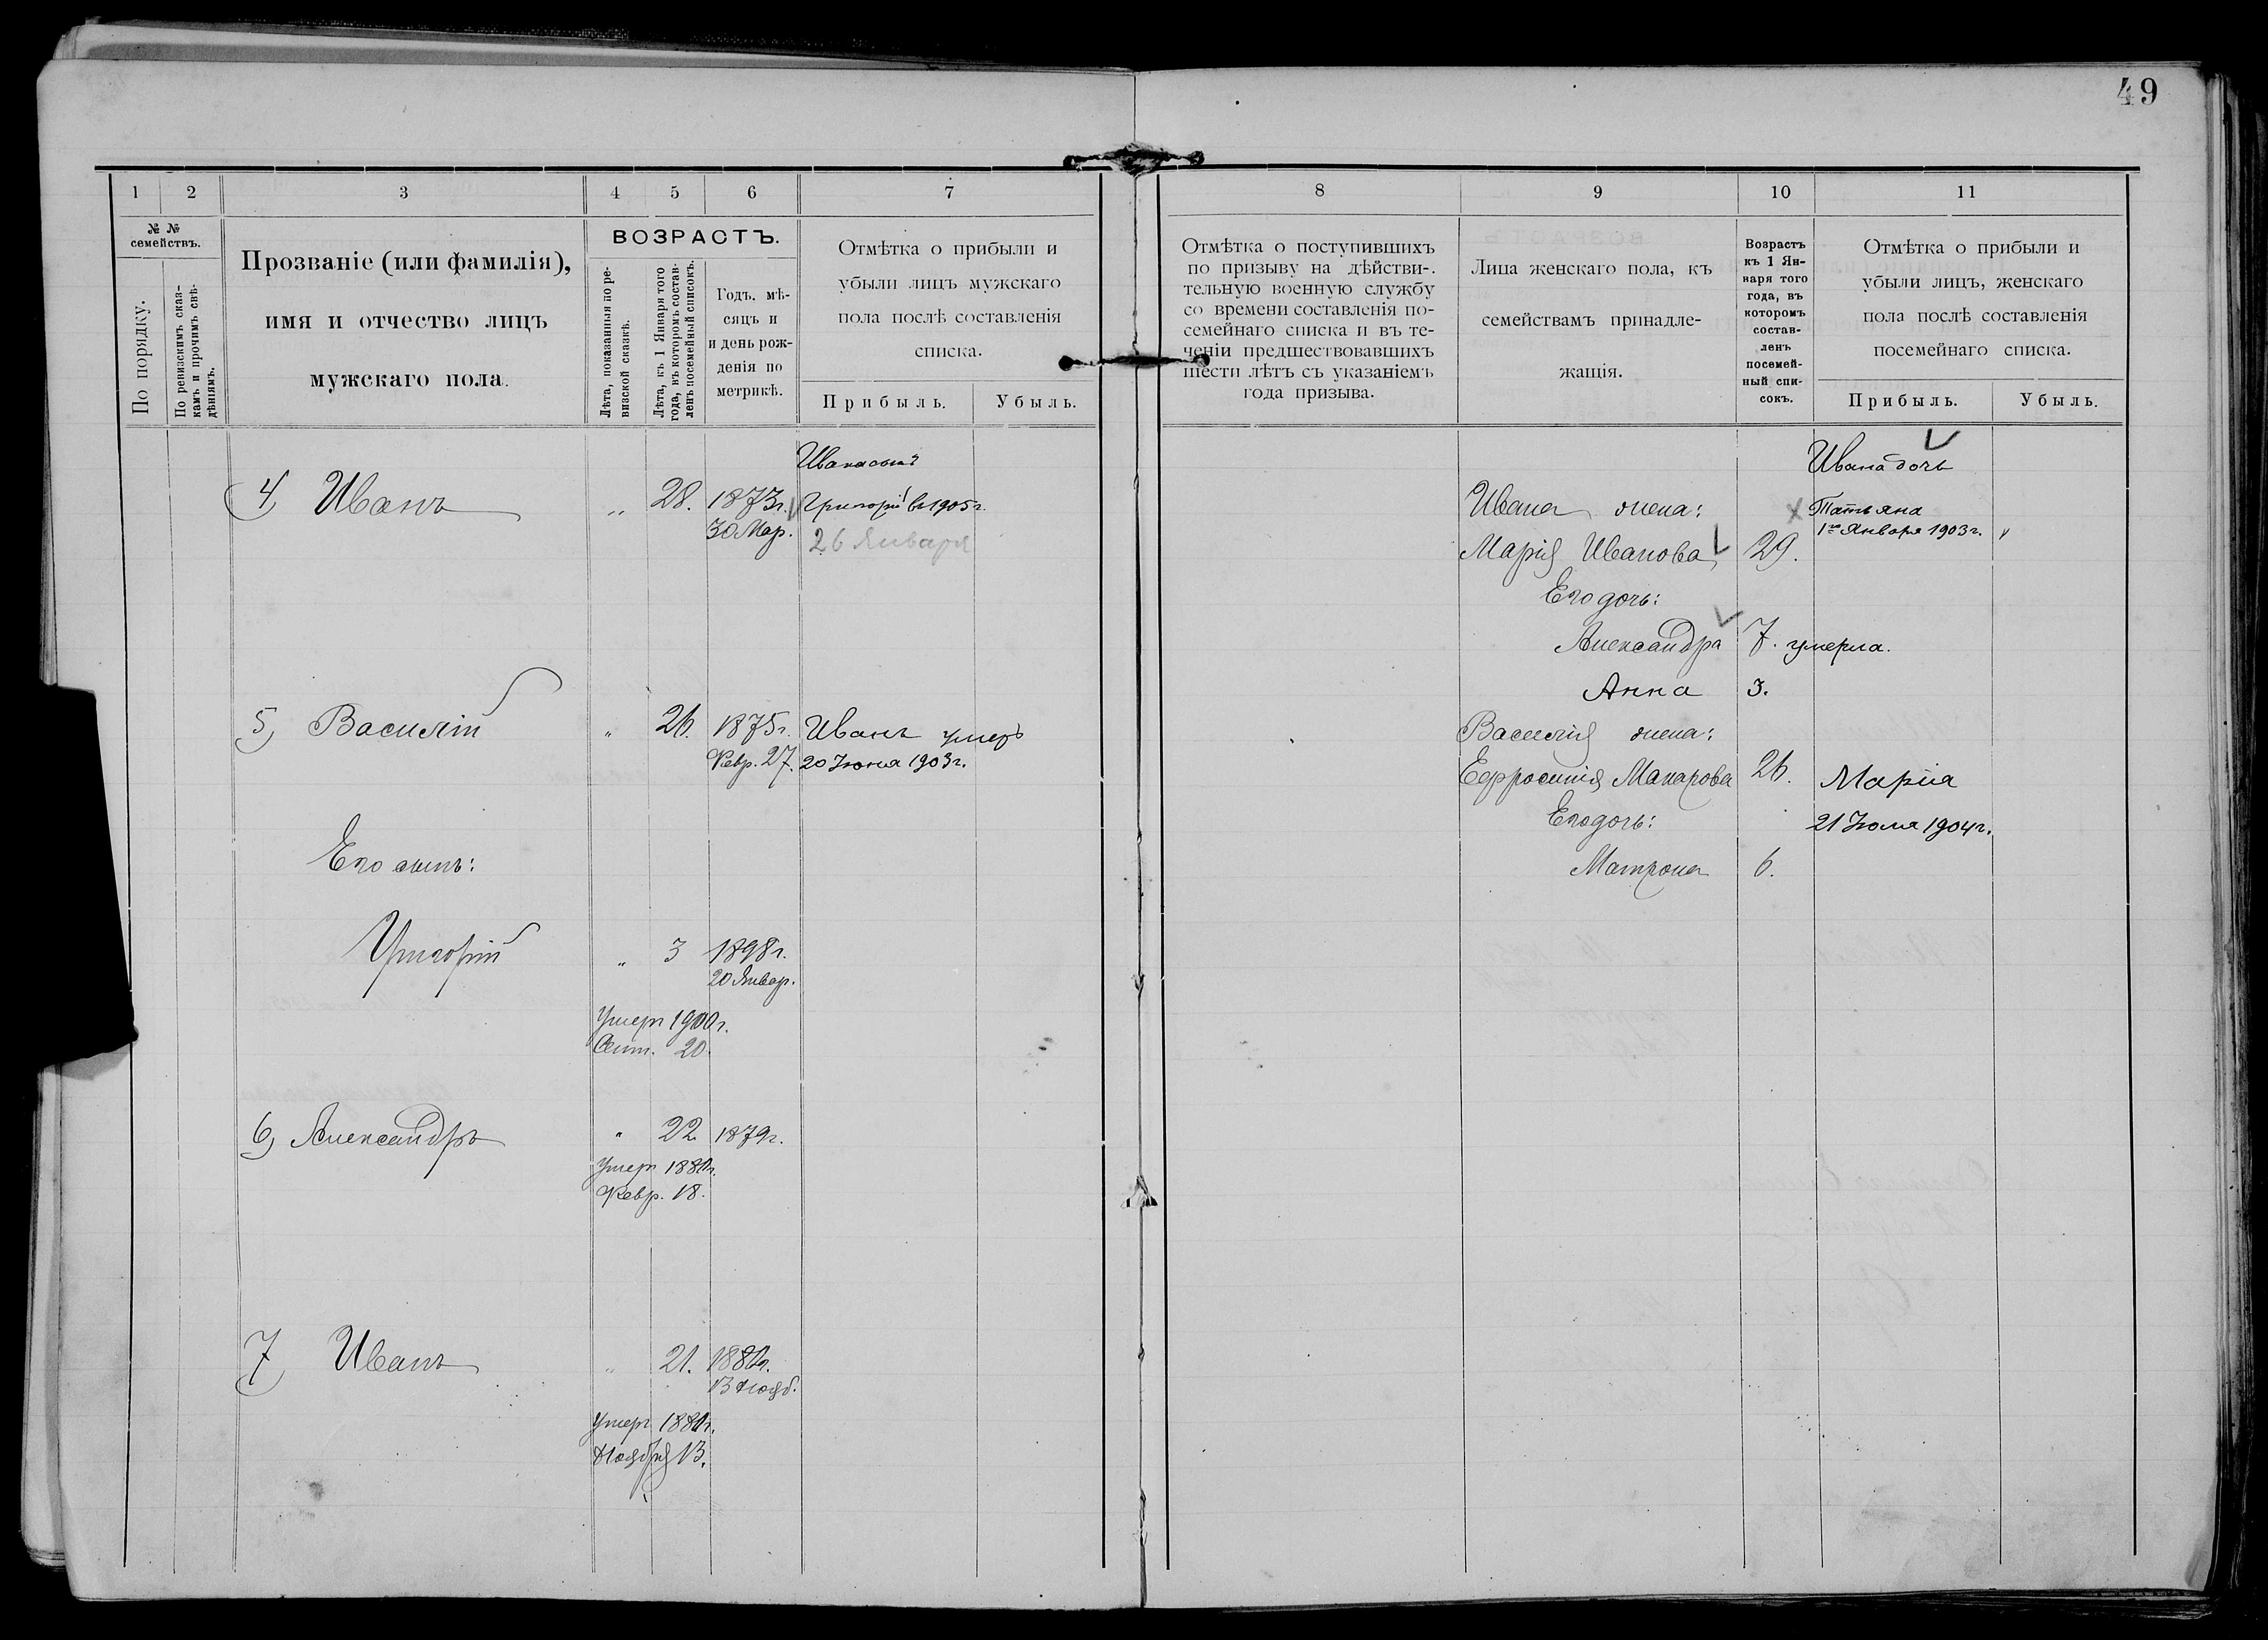 49
1 2 3 4 5 6 7
№ №
семействъ.
По порядку.
По ревизскимъ сказ-
камъ и прочимъ свѣ-
дѣніямъ.
Прозваніе (или фамилія),
имя и отчество лицъ
мужскаго пола.
ВОЗРАСТЪ.
Лѣта, показанныя по ре-
визской сказкѣ.
Лѣта, къ 1 Января того
года, въ которомъ состав-
ленъ посемейный списокъ.
Годъ. мѣ-
сяцъ и
и день рож-
денія по
метрикѣ.
Отмѣтка о прибыли и
убыли лицъ мужскаго
пола послѣ составленія
списка.
Прибыль. Убыль.
Ивана сынъ
4) Иванъ „ 28. 1873г. Григорій в 1905г.
30 Мар. 26 Января
5) Василій „ 26. 1875г. Иванъ умеръ
Февр. 27. 20 Іюня 1903г.
Его сынъ:
Григорій „ 3 1898г.
20 Январ.
Умеръ 1900г.
Сент. 20.
6) Александръ „ 22 1879г.
Умеръ 1881г.
Февр. 18.
7) Иванъ „ 21. 1881г.
13 Нояб.
Умеръ 1881г.
Ноября 13.
8 9 10 11
Отмѣтка о поступившихъ
по призыву на дѣйстви-.
тельную военную службу
со времени составленія по-
семейнаго списка и въ те-
ченіи предшествовавшихъ
шести лѣтъ съ указаніемъ
года призыва.
Лица женскаго пола, къ
семействамъ принадле-
жащія.
Возрастъ
къ 1 Ян-
наря того
года, въ
которомъ
состав-
ленъ
посемей-
ный спи-
сокъ.
Отмѣтка о прибыли и
убыли лицъ, женскаго
пола послѣ составленія
посемейнаго списка.
Прибыль. Убыль.
Ивана дочь
Ивана жена: Татьяна
1го Января 1903г.
Марія Иванова 29.
Его дочь:
Александра 7. умерла.
Анна 3.
Василія жена:
Ефросинія Макарова 26. Марія
Его дочь: 21 Іюля 1904г.
Матрона 6.